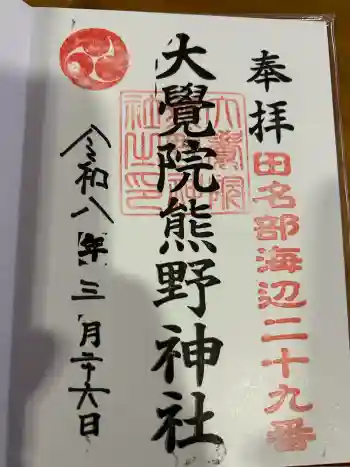 奉拝
田名部海辺二十九番
大覺院熊野神社
令和八年三月二十六日